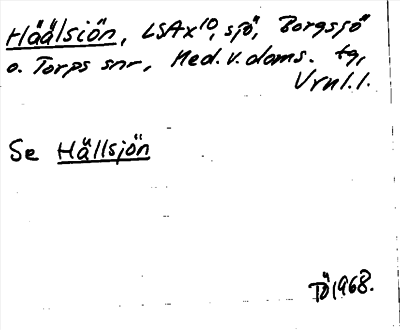 Häälsiön, LSAx10, sjö, Borgsjö
o. Torps snr, Med. v. doms. tg,
Vrnl.l.
Se Hällsjön
TÖ 1968.